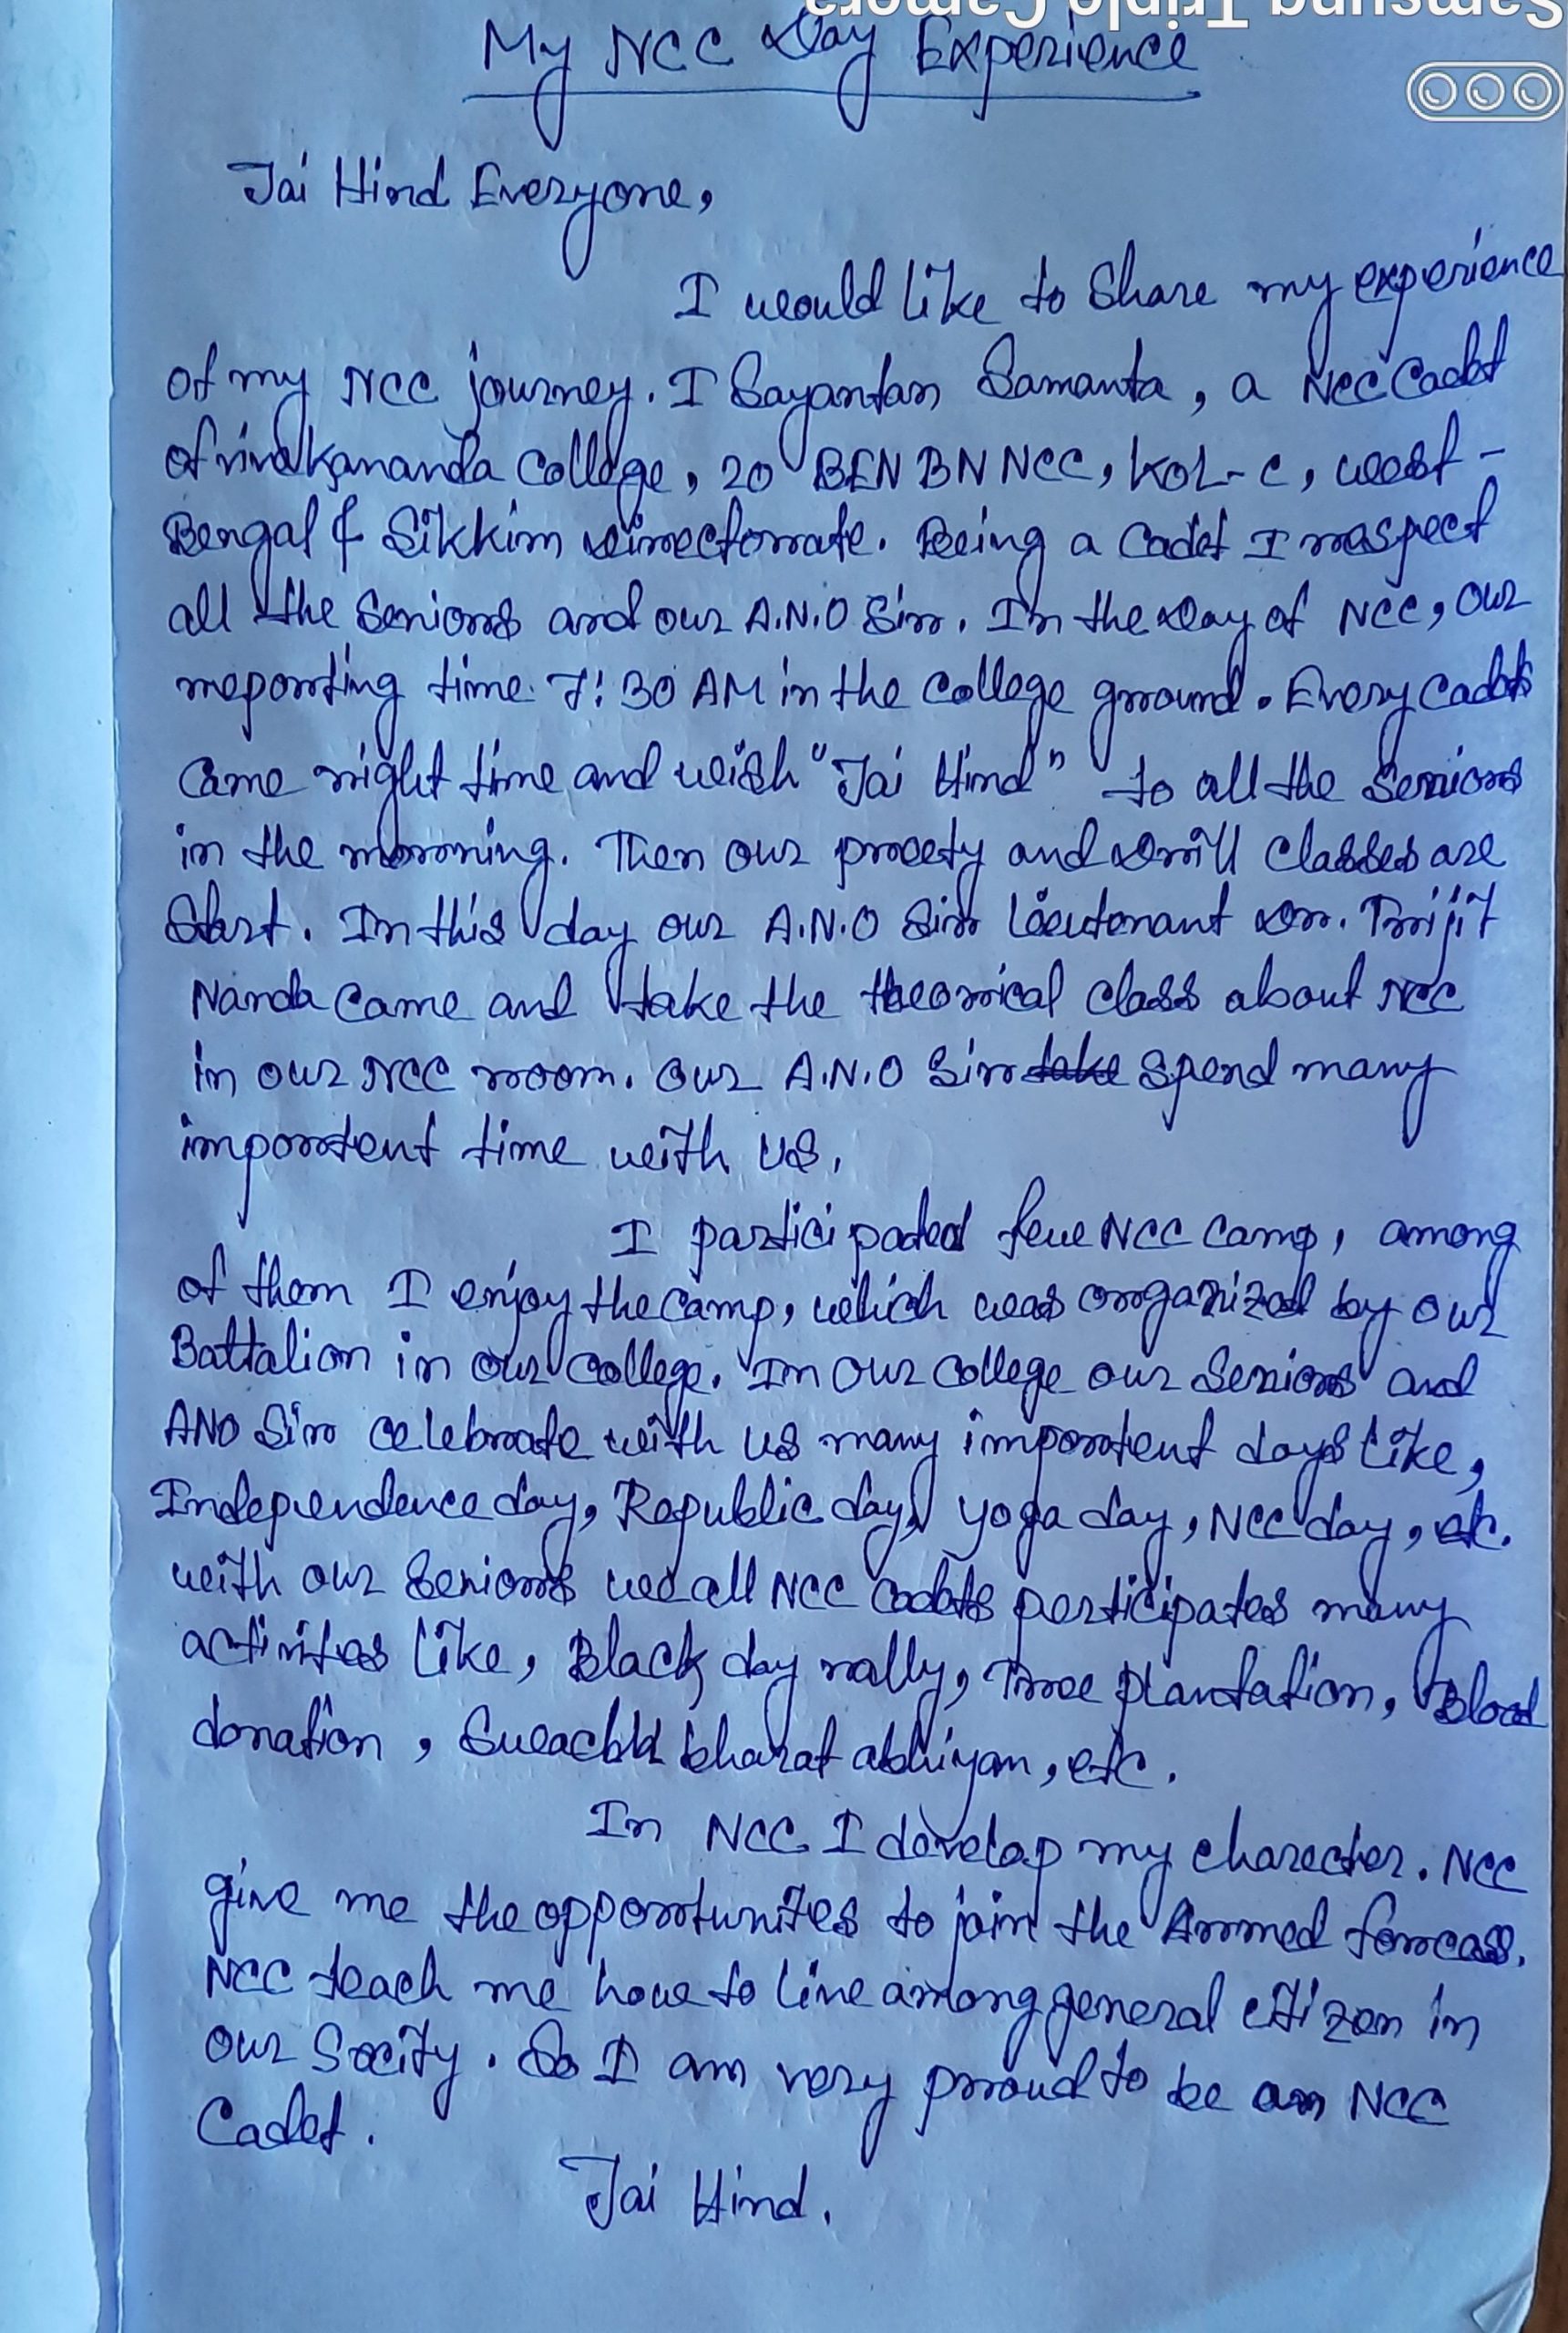 Samsung Triple Camera
My NCC Day Experience
Jai Hind Everyone,
I would like to Share my experience
of my NCC journey. I Sayantan Samanta, a NCC Cadet
of vivekananda College, 20 BEN BN NCC, KOL-C, west-
Bengal & Sikkim Directorate. Being a Cadet I respect
all the Seniors and our A.N.O Sir. In the Day of NCC, our
reporting time 7:30 AM in the College ground. Every Cadets
Came right time and wish "Jai Hind" to all the Seniors
in the morning. Then our and Drill classes are
Start. In this day our A.N.O Sir Lieutenant Dr. Trijit
Nanda Came and take the theorical class about NCC
in our NCC room. Our A.N.O Sir take Spend many
importent time with us.
I participated few NCC Camp, among
of them I enjoy the Camp, which was organized by our
Battalion in our College. In our College our Seniors and
ANO Sir celebrate with us many importent days like,
Independence day, Republic day, yoga day, NCC day, etc.
with our Seniors we all NCC Cadets participates many
activites like, Black day rally, Tree plantation, Blood
donation, Swachh bharat abhiyan, etc.
In NCC I develop my charecter. NCC
give me the opportunites to join the Armed forces.
NCC teach me how to live among general citizen in
our Socity. So I am very proud to be an NCC
Cadet.
Jai Hind.